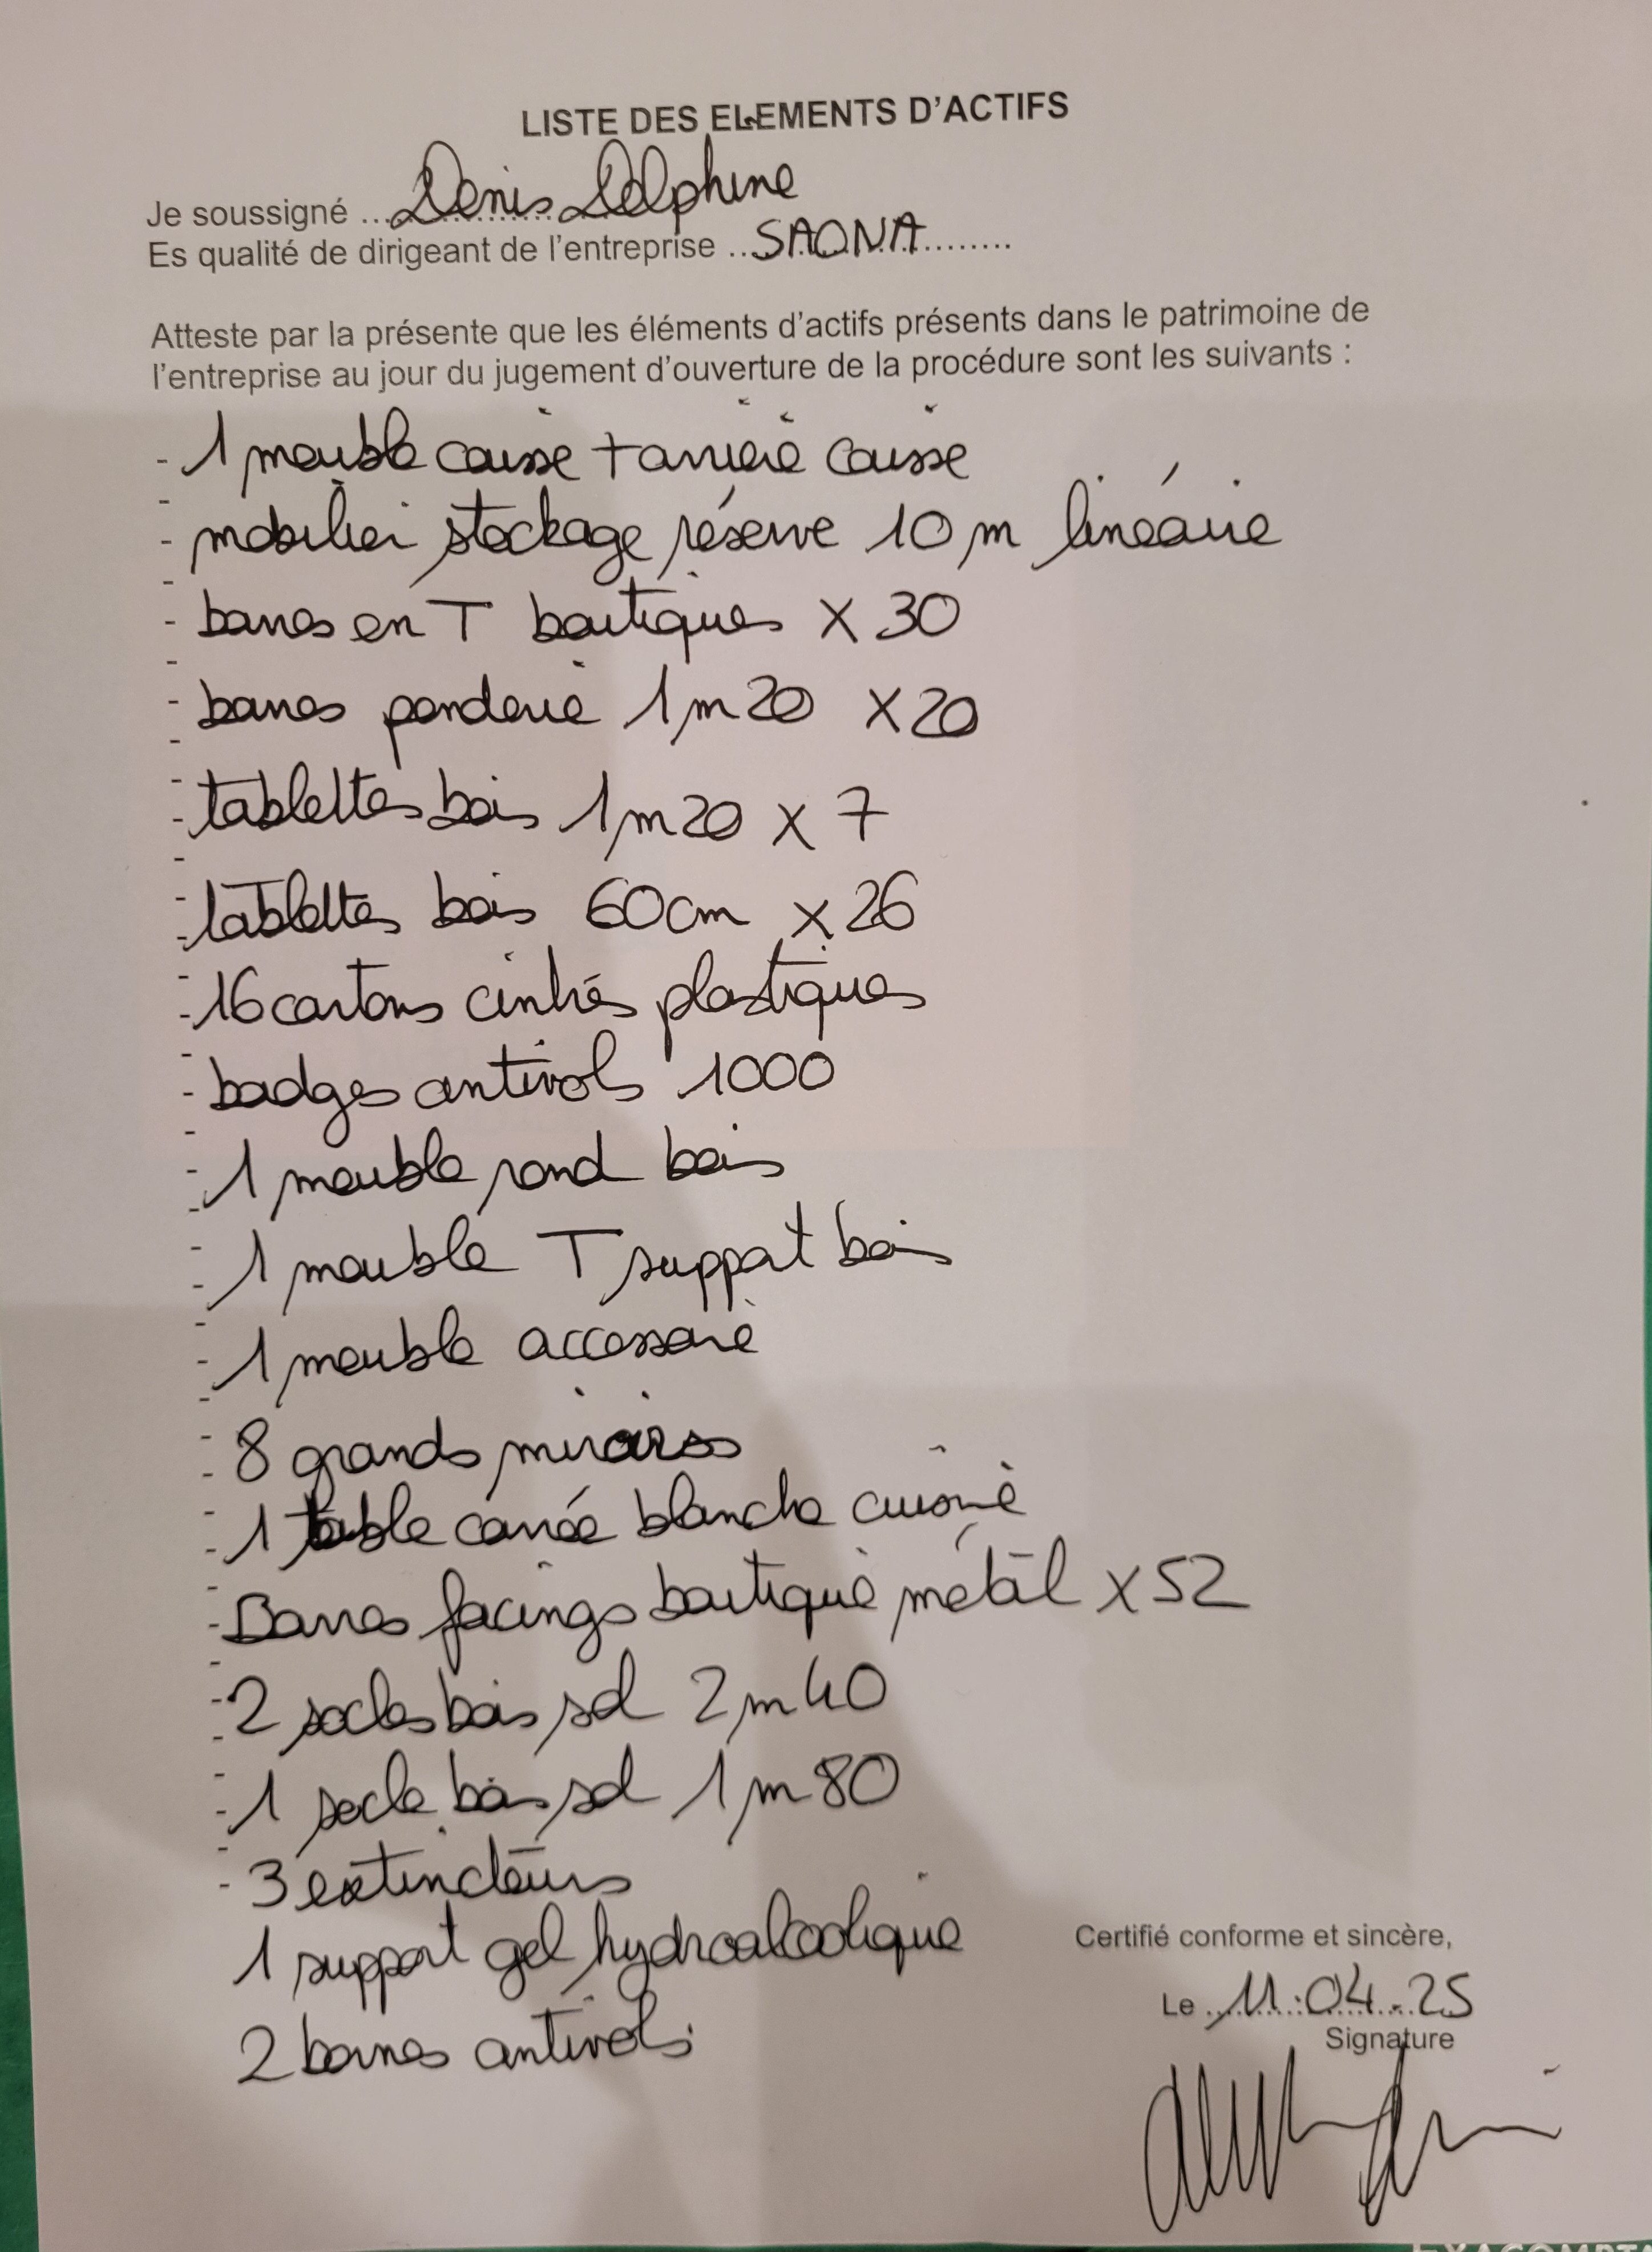 LISTE DES ELEMENTS D'ACTIFS
Je soussigné ... Denis Delphine
Es qualité de dirigeant de l'entreprise ... SAONA .........
Atteste par la présente que les éléments d'actifs présents dans le patrimoine de
l'entreprise au jour du jugement d'ouverture de la procédure sont les suivants :
- 1 meuble caisse + arrière caisse
- mobilier stockage réserve 10 m linéaire
- barres en T boutiques X 30
- barres penderie 1m20 X 20
- tablettes bois 1m20 x 7
- tablettes bois 60cm x 26
- 16 cartons cintrés plastiques
- badges antivols 1000
- 1 meuble rond bois
- 1 meuble T support bois
- 1 meuble accessoire
- 8 grands miroirs
- 1 table carrée blanche cuisine
- Barres facings boutique métal x 52
- 2 socles bois sol 2m40
- 1 socle bois sol 1m80
- 3 extincteurs
1 support gel hydroalcoolique
2 bornes antivols
Certifié conforme et sincère,
Le 11.04.25
Signature